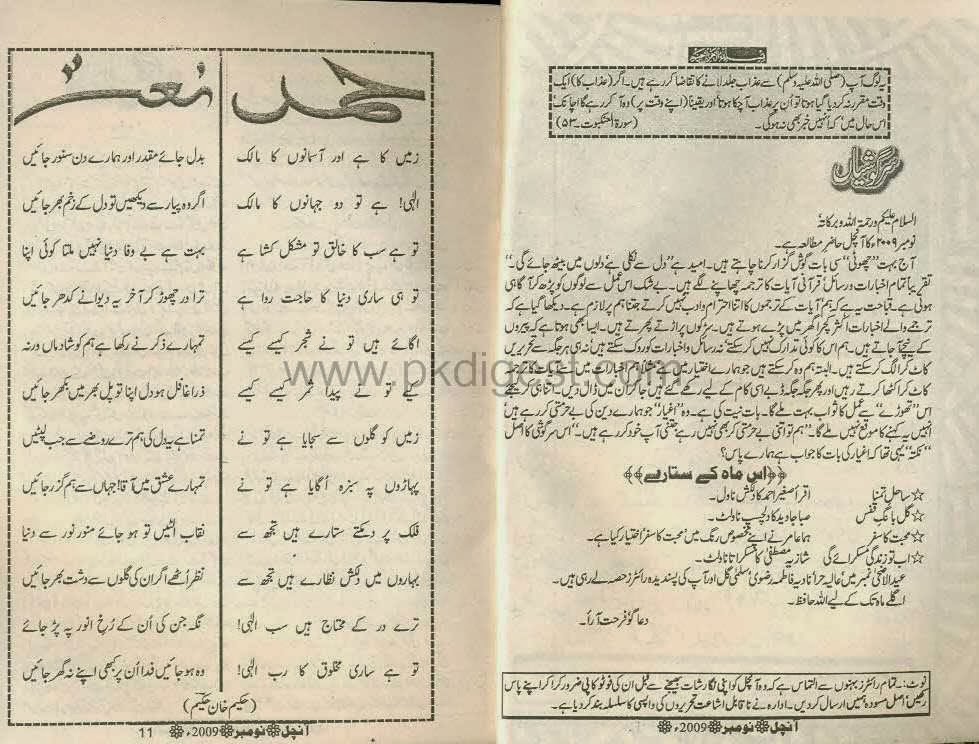 یہ لوگ آپ (صلی اللہ علیہ وسلم) سے عذاب جلد لانے کا تقاضا کر رہے ہیں۔ اگر (عذاب کا) ایک
وقت مقرر نہ کر دیا گیا ہوتا تو اُن پر عذاب آچکا ہوتا اور یقیناً (اپنے وقت پر) وہ آکر رہے گا اچانک
اس حال میں کہ انہیں خبر بھی نہ ہوگی۔ (سورۃ العنکبوت ۔۵۳)
سرگوشیاں
السلام علیکم ورحمۃ اللہ وبرکاتہ
نومبر ۲۰۰۹ء کا آنچل حاضر مطالعہ ہے۔
آج بہت ”چھوٹی“ سی بات گوش گزار کرنا چاہتے ہیں۔ امید ہے ”دل سے نکلی ہے دلوں میں بیٹھ جائے گی۔“
تقریباً تمام اخبارات ورسائل قرآنی آیات کا ترجمہ چھاپنے لگے ہیں۔ بے شک اس عمل سے لوگوں کو پڑھ کر آگاہی
ہوتی ہے۔ قباحت یہ ہے کہ ہم آیات کے ترجموں کا اتنا احترام وادب نہیں کرتے جتنا ہم پر لازم ہے۔ دیکھا گیا ہے کہ
ترجمے والے اخبارات اکثر کچرا گھر میں پڑے ہوتے ہیں۔ سڑکوں پر اڑتے پھرتے ہیں۔ ایسا بھی ہوتا ہے کہ پیروں
کے نیچے آجاتے ہیں۔ ہم اس کا کوئی تدارک نہیں کر سکتے نہ رسائل واخبارات کو روک سکتے ہیں نہ ہی ہر جگہ سے تحریریں
کاٹ کر الگ کر سکتے ہیں۔ البتہ ہم وہ کر سکتے ہیں جو ہمارے اختیار میں ہے۔ مثلاً ہم اخبارات میں سے آیات کا ترجمہ
کاٹ کر اکٹھا کرتے رہیں اور پھر جگہ جگہ ڈبے اسی کام کے لیے رکھے گئے ہیں جاکر ان میں ڈال دیں۔ اتنا ہی کر لیجئے
اس ”تھوڑے“ سے عمل کا ثواب بہت ملے گا۔ بات نیت کی ہے۔ وہ ”اغیار“ جو ہمارے دین کی بے حرمتی کر رہے ہیں
انہیں یہ کہنے کا موقع نہیں ملے گا۔ ”ہم تو اتنی بے حرمتی کر بھی نہیں رہے جتنی آپ خود کر رہے ہیں۔“ اس سرگوشی کا اصل
”نکتہ“ یہی تھا کہ اغیار کی بات کا جواب ہے ہمارے پاس؟
﴿﴿اس ماہ کے ستارے﴾﴾
☆ساحل تمنا اقرأ صغیر احمد کا دلکش ناول۔
☆گل بانگ قفس صبا جاوید کا دلچسپ ناولٹ۔
☆محبت کا سفر ہما عامر نے اپنے مخصوص رنگ میں محبت کا سفر اختیار کیا ہے۔
☆اب تو زندگی مسکرائے گی شازیہ مصطفیٰ کا مسکراتا ناولٹ۔
عید الاضحیٰ نمبر میں عالیہ حرا نادیہ فاطمہ رضوی سلمیٰ گل اور آپ کی پسندیدہ رائٹرز حصہ لے رہی ہیں۔
اگلے ماہ تک کے لیے اللہ حافظ۔
دعا گو فرحت آرأ۔
نوٹ:۔ تمام رائٹرز بہنوں سے التماس ہے کہ وہ آنچل کو اپنی نگارشات بھیجنے سے قبل ان کی فوٹو کاپی ضرور کرا کر اپنے پاس
رکھیں اصل مسودہ ہمیں ارسال کر دیں۔ ادارہ نے ناقابل اشاعت تحریروں کی واپسی کا سلسلہ بند کر دیا ہے۔
آنچل نومبر 2009ء
حمد
زمیں کا ہے اور آسمانوں کا مالک
الٰہی! ہے تو دو جہانوں کا مالک
تو ہے سب کا خالق تو مشکل کشا ہے
تو ہی ساری دنیا کا حاجت روا ہے
اگائے ہیں تو نے شجر کیسے کیسے
کیے تو نے پیدا ثمر کیسے کیسے
زمیں کو گلوں سے سجایا ہے تو نے
پہاڑوں پہ سبزہ اُگایا ہے تو نے
فلک پر دمکتے ستارے ہیں تجھ سے
بہاروں میں دلکش نظارے ہیں تجھ سے
ترے در کے محتاج ہیں سب الٰہی!
تو ہے ساری مخلوق کا رب الٰہی!
نعت
بدل جائے مقدر اور ہمارے دن سنور جائیں
اگر وہ پیار سے دیکھیں تو دل کے زخم بھر جائیں
بہت ہے بے وفا دنیا نہیں ملتا کوئی اپنا
ترا در چھوڑ کر آخر یہ دیوانے کدھر جائیں
تمہارے ذکر نے رکھا ہے ہم کو شادماں ورنہ
ذرا غافل ہو دل اپنا تو پل بھر میں بکھر جائیں
تمنا ہے یہ دل کی ہم ترے روضے سے جب لپٹیں
تمہارے عشق میں آقا! جہاں سے ہم گزر جائیں
نقاب الٹیں تو ہو جائے منور نور سے دنیا
نظر اُٹھے اگر ان کی گلوں سے دشت بھر جائیں
نگہ جن کی اُن کے رُخِ انور پہ پڑ جائے
وہ ہو جائیں فدا اُن پر کبھی اپنے نہ گھر جائیں
(حکیم خان حکیم)
آنچل نومبر 2009ء 11
www.pkdigest.com